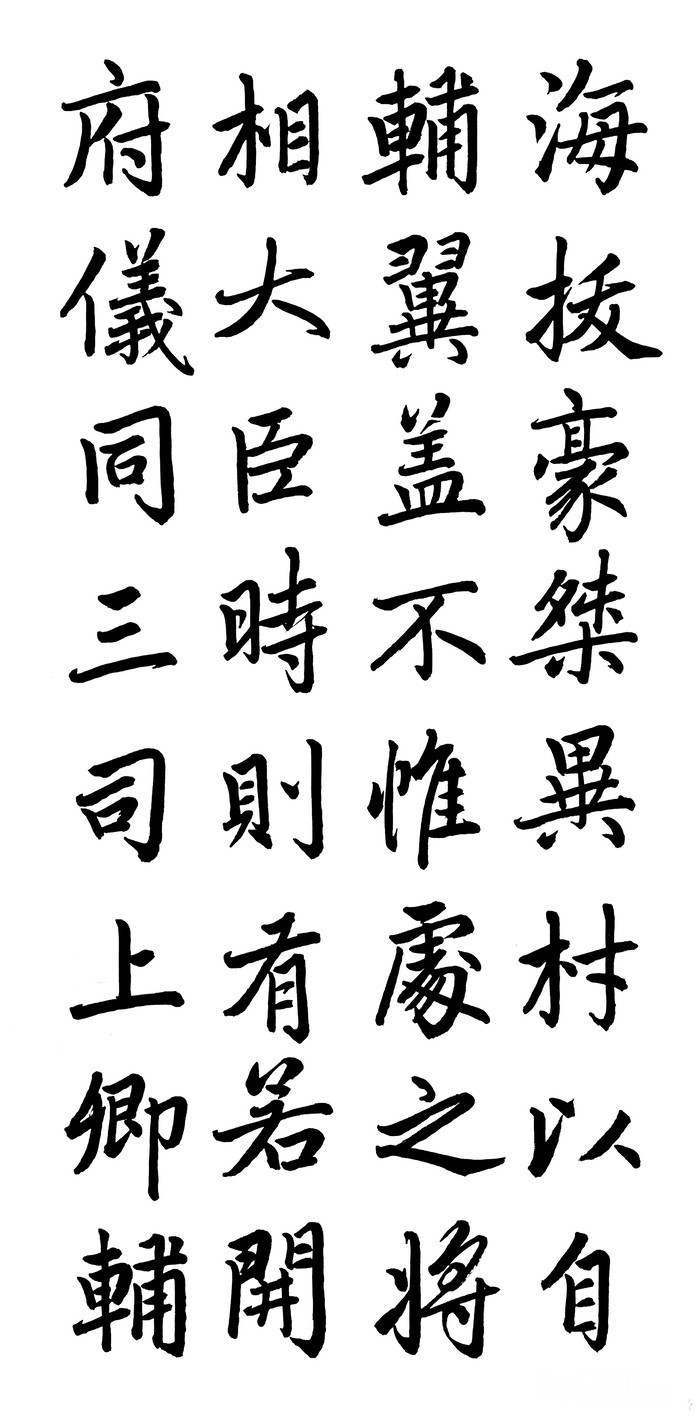 海拔豪桀異材以自
輔翼盖不惟處之將
相大臣時則有若開
府儀同三司上卿輔